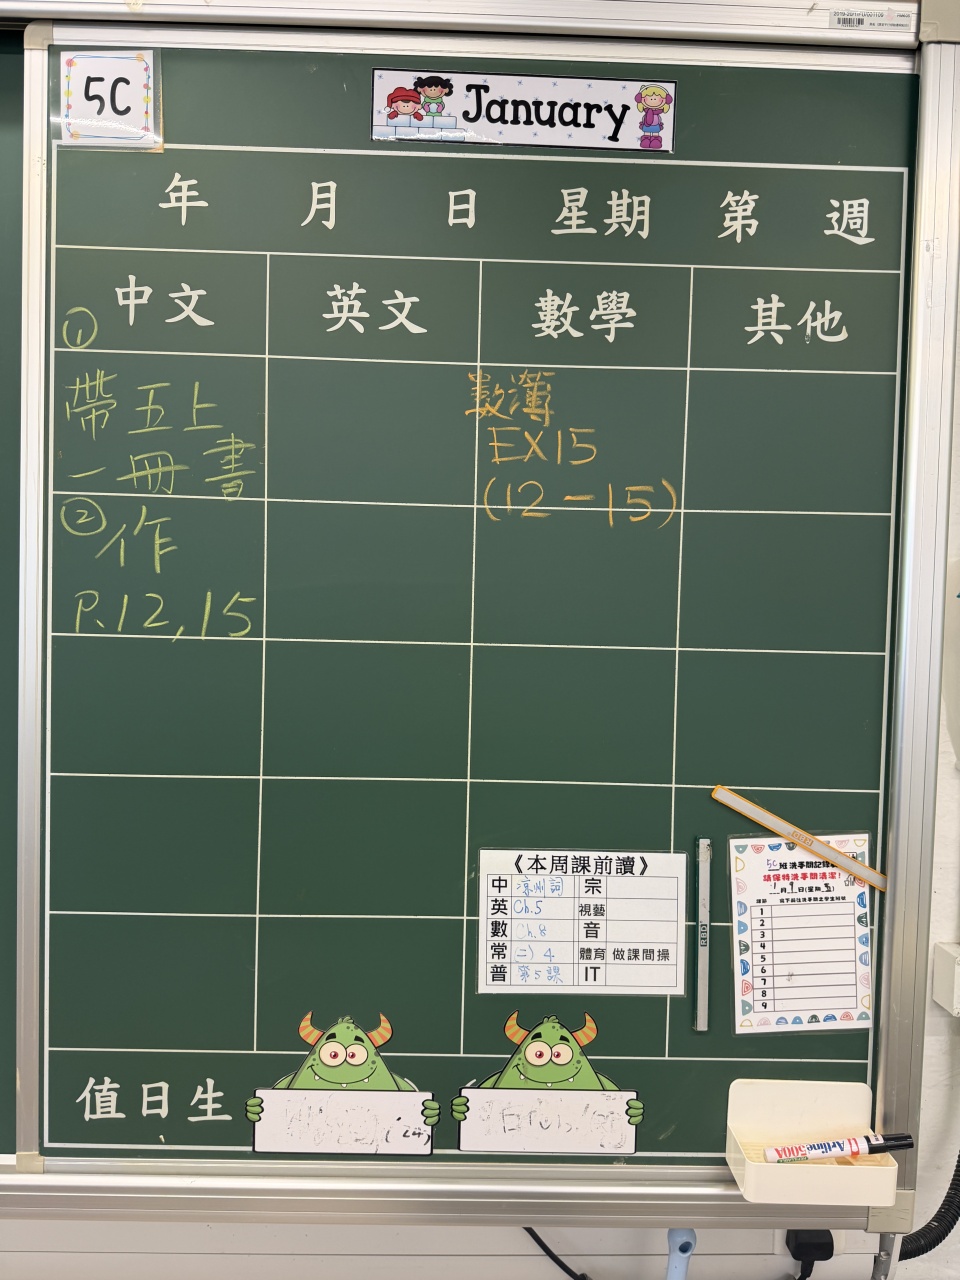 5C
January
年 月 日 星期 第 週
中文 英文 數學 其他
①
帶五上
一冊書
②作
P.12,15
數簿
EX15
(12-15)
《本周課前讀》
中 涼州詞 宗
英 Ch.5 視藝
數 Ch.8 音
常 二) 4 體育 做課間操
普 第5課 IT
5C班洗手間記錄
請保持洗手間清潔!
1月9日(星期五)
1
2
3
4
5
6
7
8
9
值日生
(24)
Artline 500A